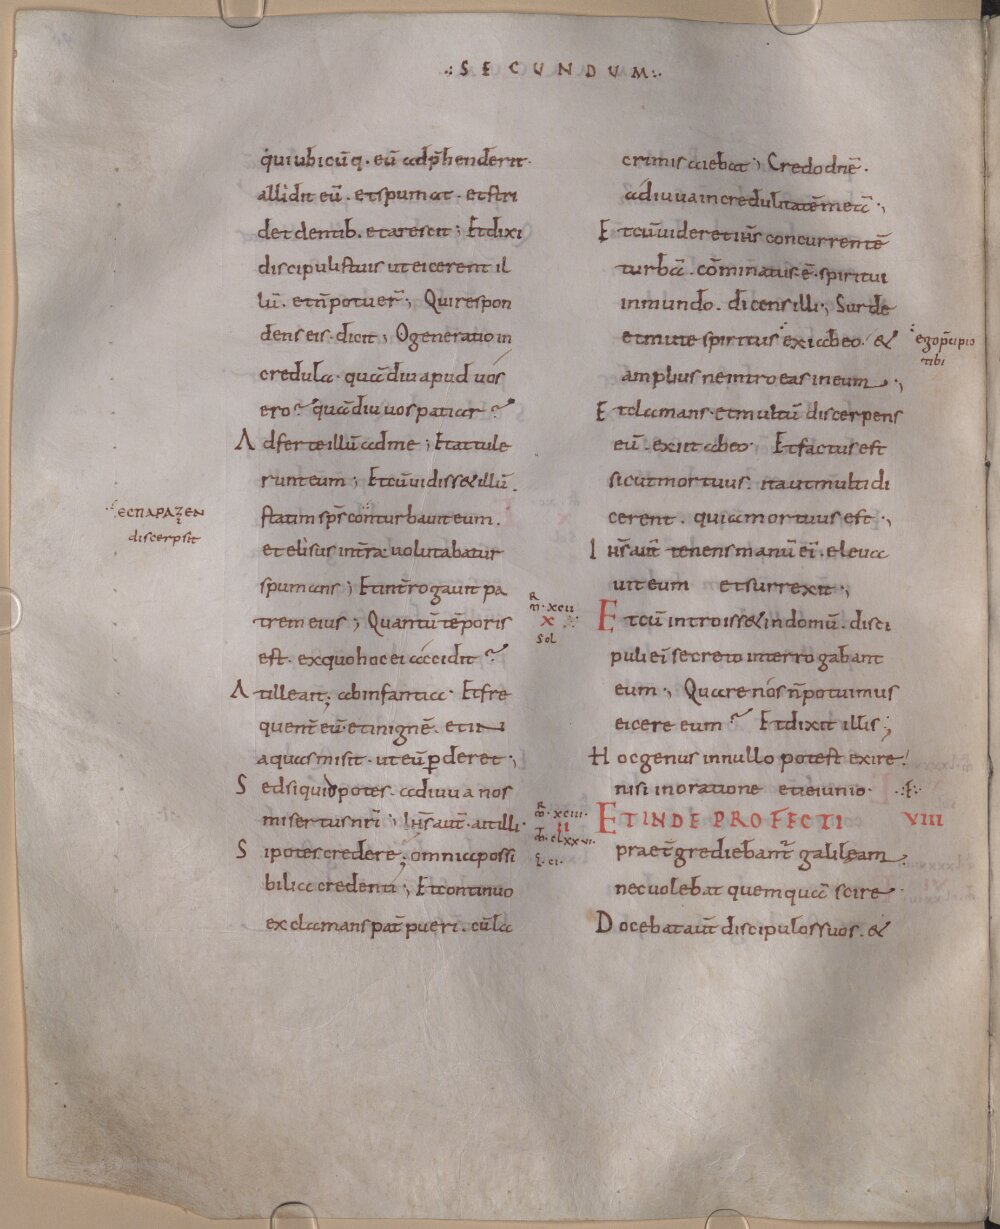 .: SECUNDUM :.
qui ubicūq. eū adp̄henderit.
allidit eū. et spumat. et stri
det dentib. et arescit ; Et dixi
discipulis tuis ut eicerent il
lū. et n̄ potuer̄ ; Qui respon
dens eis. dicit ; O generatio in
credula. quādiu apud uos
ero ? quādiu uos patiar ?
Adferte illū ad me ; Et attule
runt eum ; Et cū uidiss& illū.
statim sps̄ conturbauit eum.
et elisus in tr̄a uolutabatur
spumans ; Et intr̄ogauit pa
trem eius ; Quantū tēporis
est. ex quo hoc ei accidit ?
At ille ait ; ab infantia. Et fre
quent̄ eū. et in ignē. et in
aquas misit. ut eū ꝑderet ;
Sed si quid potes. adiuua nos
misertus nr̄i ; Ihs̄ aut̄. ait illi.
Si potes credere ; omnia possi
bilia credenti ; Et continuo
exclamans pat̄ pueri. cū la
ΕϹΠΑΡΑΖΕΝ
discerpsit
crimis aiebat ; Credo dn̄e.
adiuua incredulitatē meā ;
Et cū uideret ihs̄ concurrentē
turbā. cōminatus. ē. spiritui
inmundo. dicens illi ; Surde
et mute spiritus exi ab eo. &
amplius ne introeas in eum ;
Et clamans. et multū discerpens
eū. exiit ab eo. Et factus est
sicut mortuus. ita ut multi di
cerent. quia mortuus est ;
Ihs̄ aut̄ tenens manū ei. eleua
uit eum et surrexit ;
Et cū introiss& in domū. disci
puli ei secreto interrogabant
eum ; Quare nos n̄ potuimus
eicere eum ? Et dixit illis ;
Hoc genus in nullo potest exire.
nisi in oratione et ieiunio.
ET INDE PROFECTI VIII
praet̄grediebant̄ galileam ;
nec uolebat quemquā scire
Docebat aut̄ discipulos suos. &
ego p̄cipio
tibi
R
m̄. xcii
X
sol
R
m̄. xciii.
II
m̄. clxxvi.
l̄. ci.